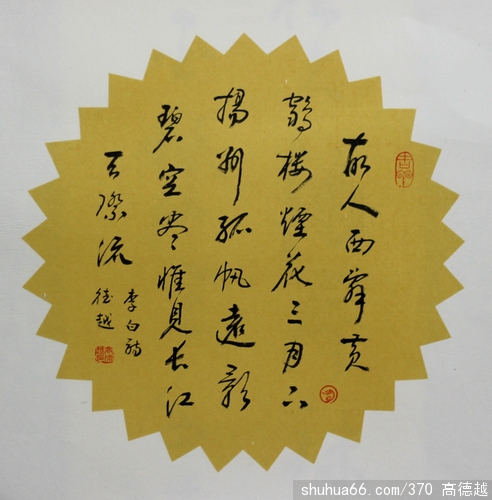 故人西辞黄
鹤楼烟花三月下
扬州孤帆远影
碧空尽惟见长江
天际流
李白诗
德越
shuhua66.com/370 高德越